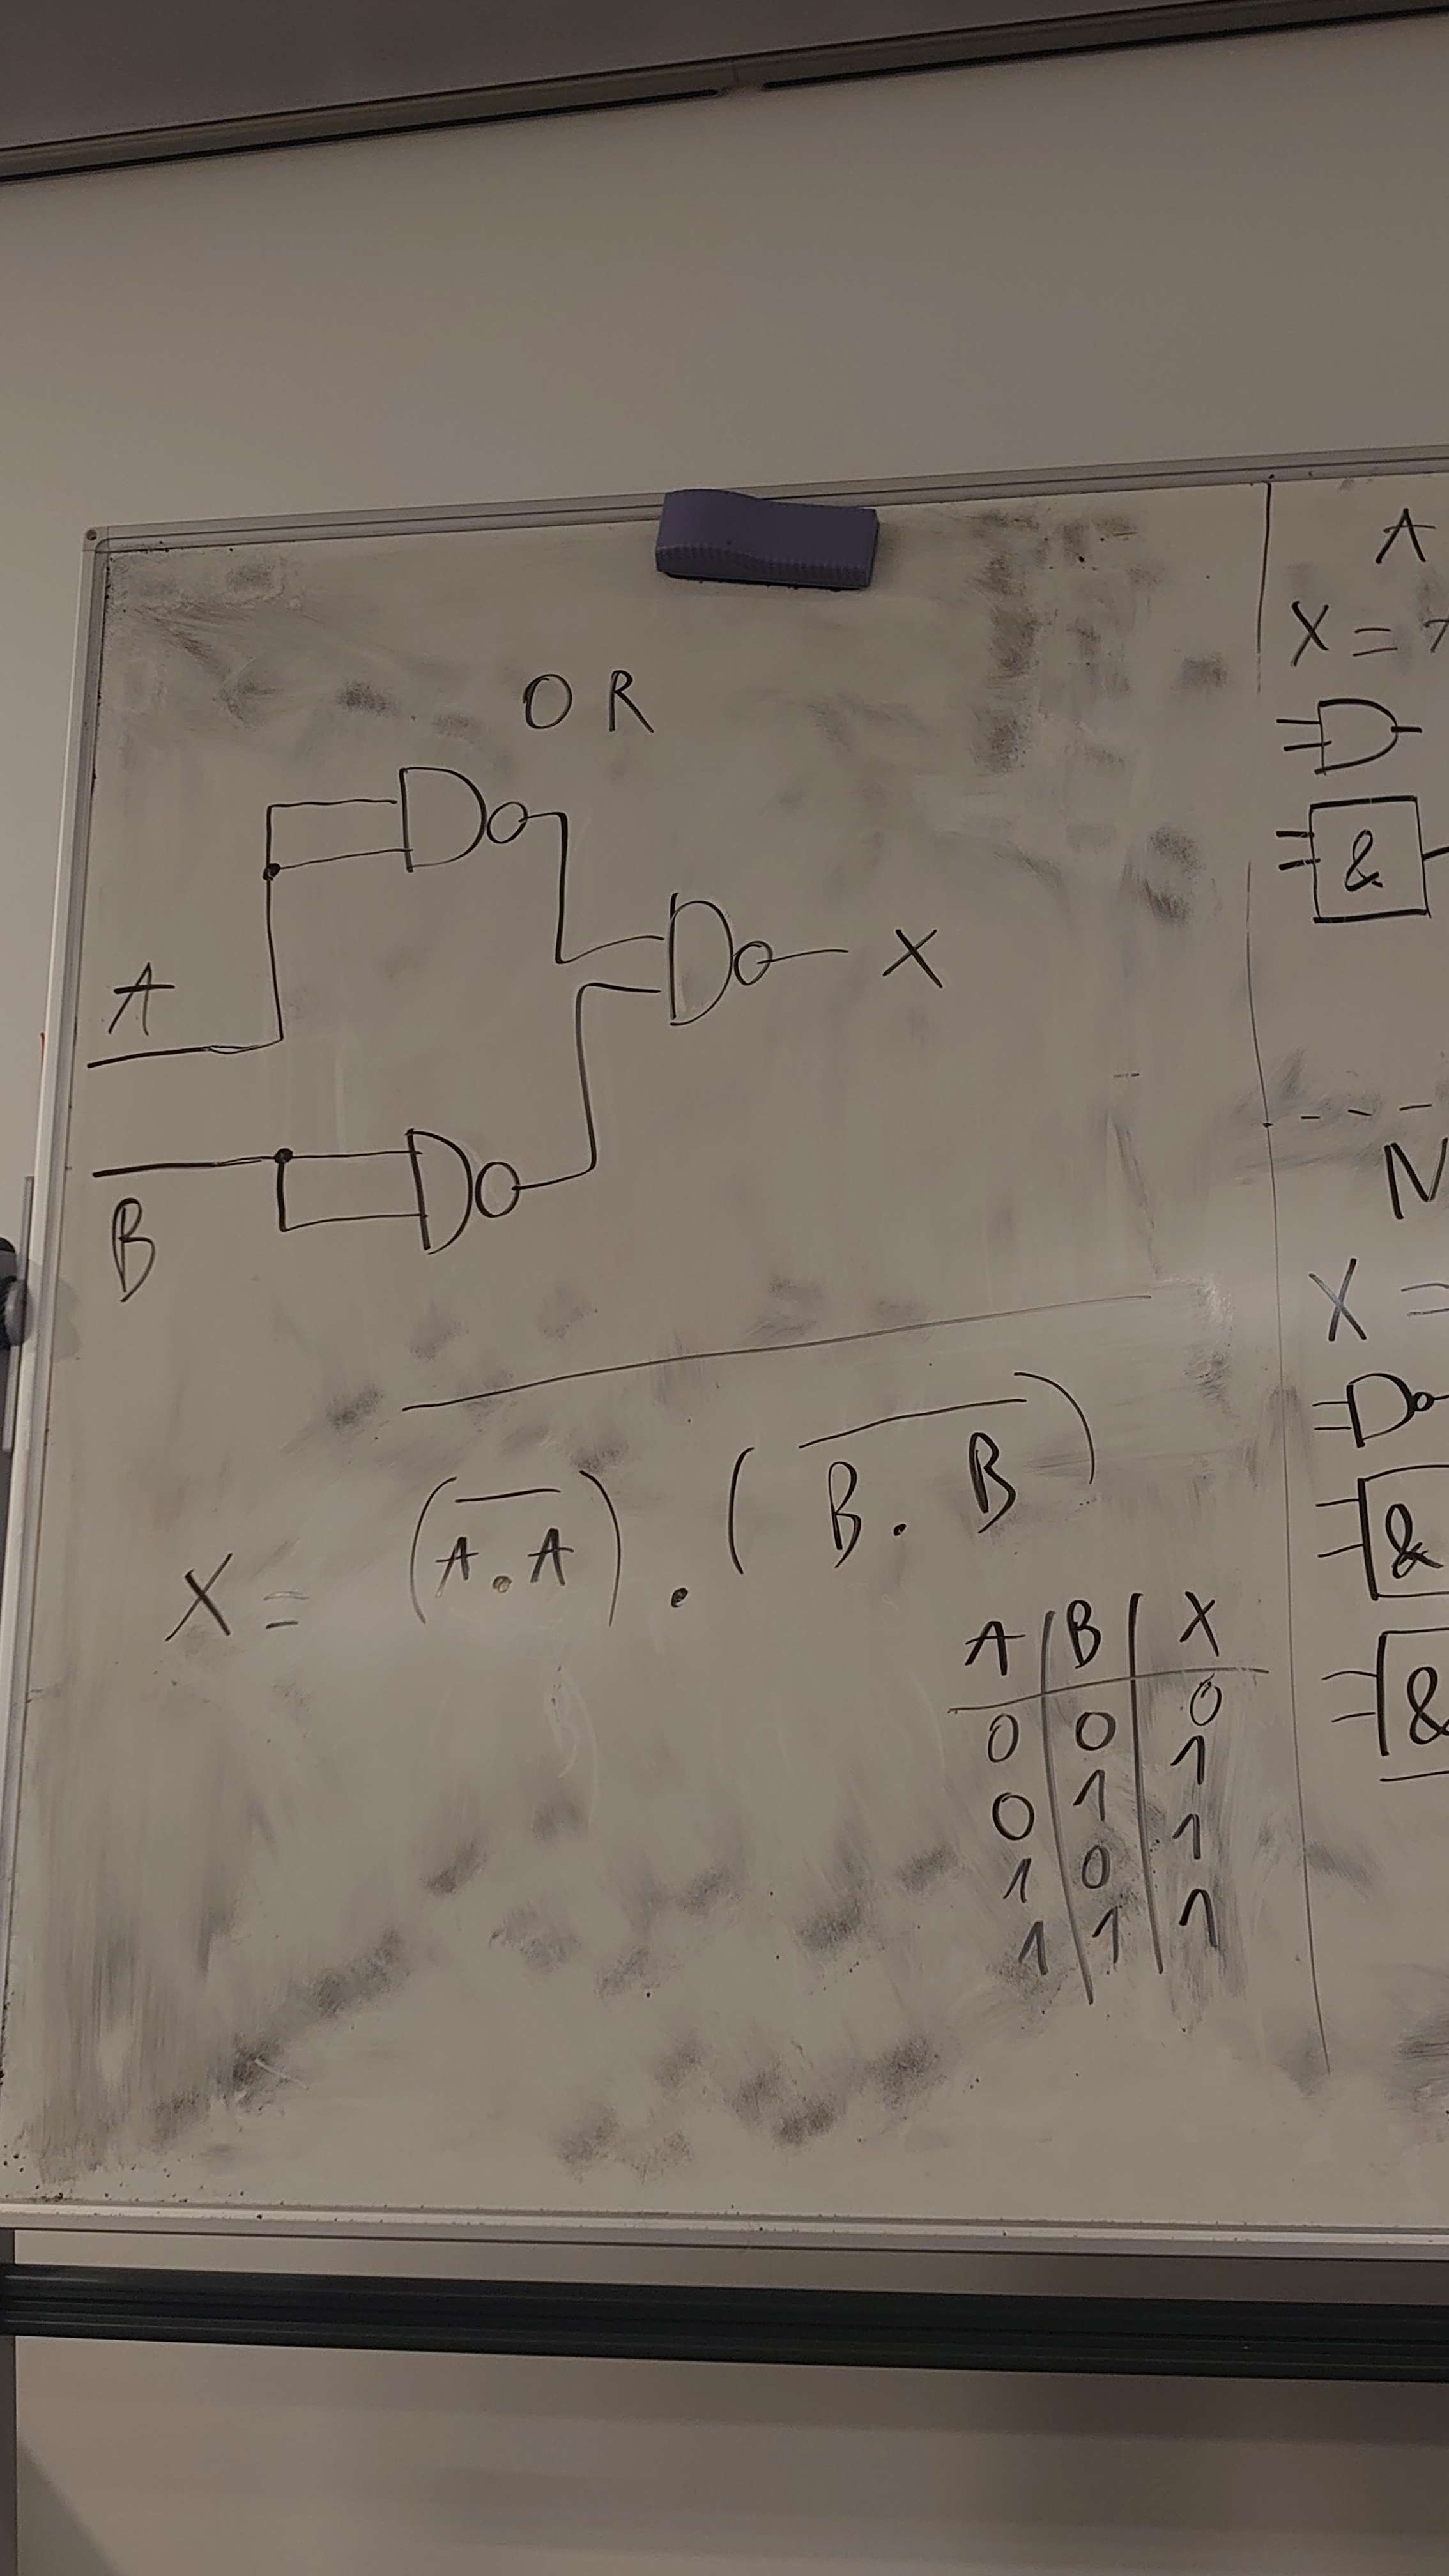 OR
A
X
B
X = \overline{(\overline{A.A}) . (\overline{B.B})}
A | B | X
0 | 0 | 0
0 | 1 | 1
1 | 0 | 1
1 | 1 | 1
A
X =
&
N
X =
&
&